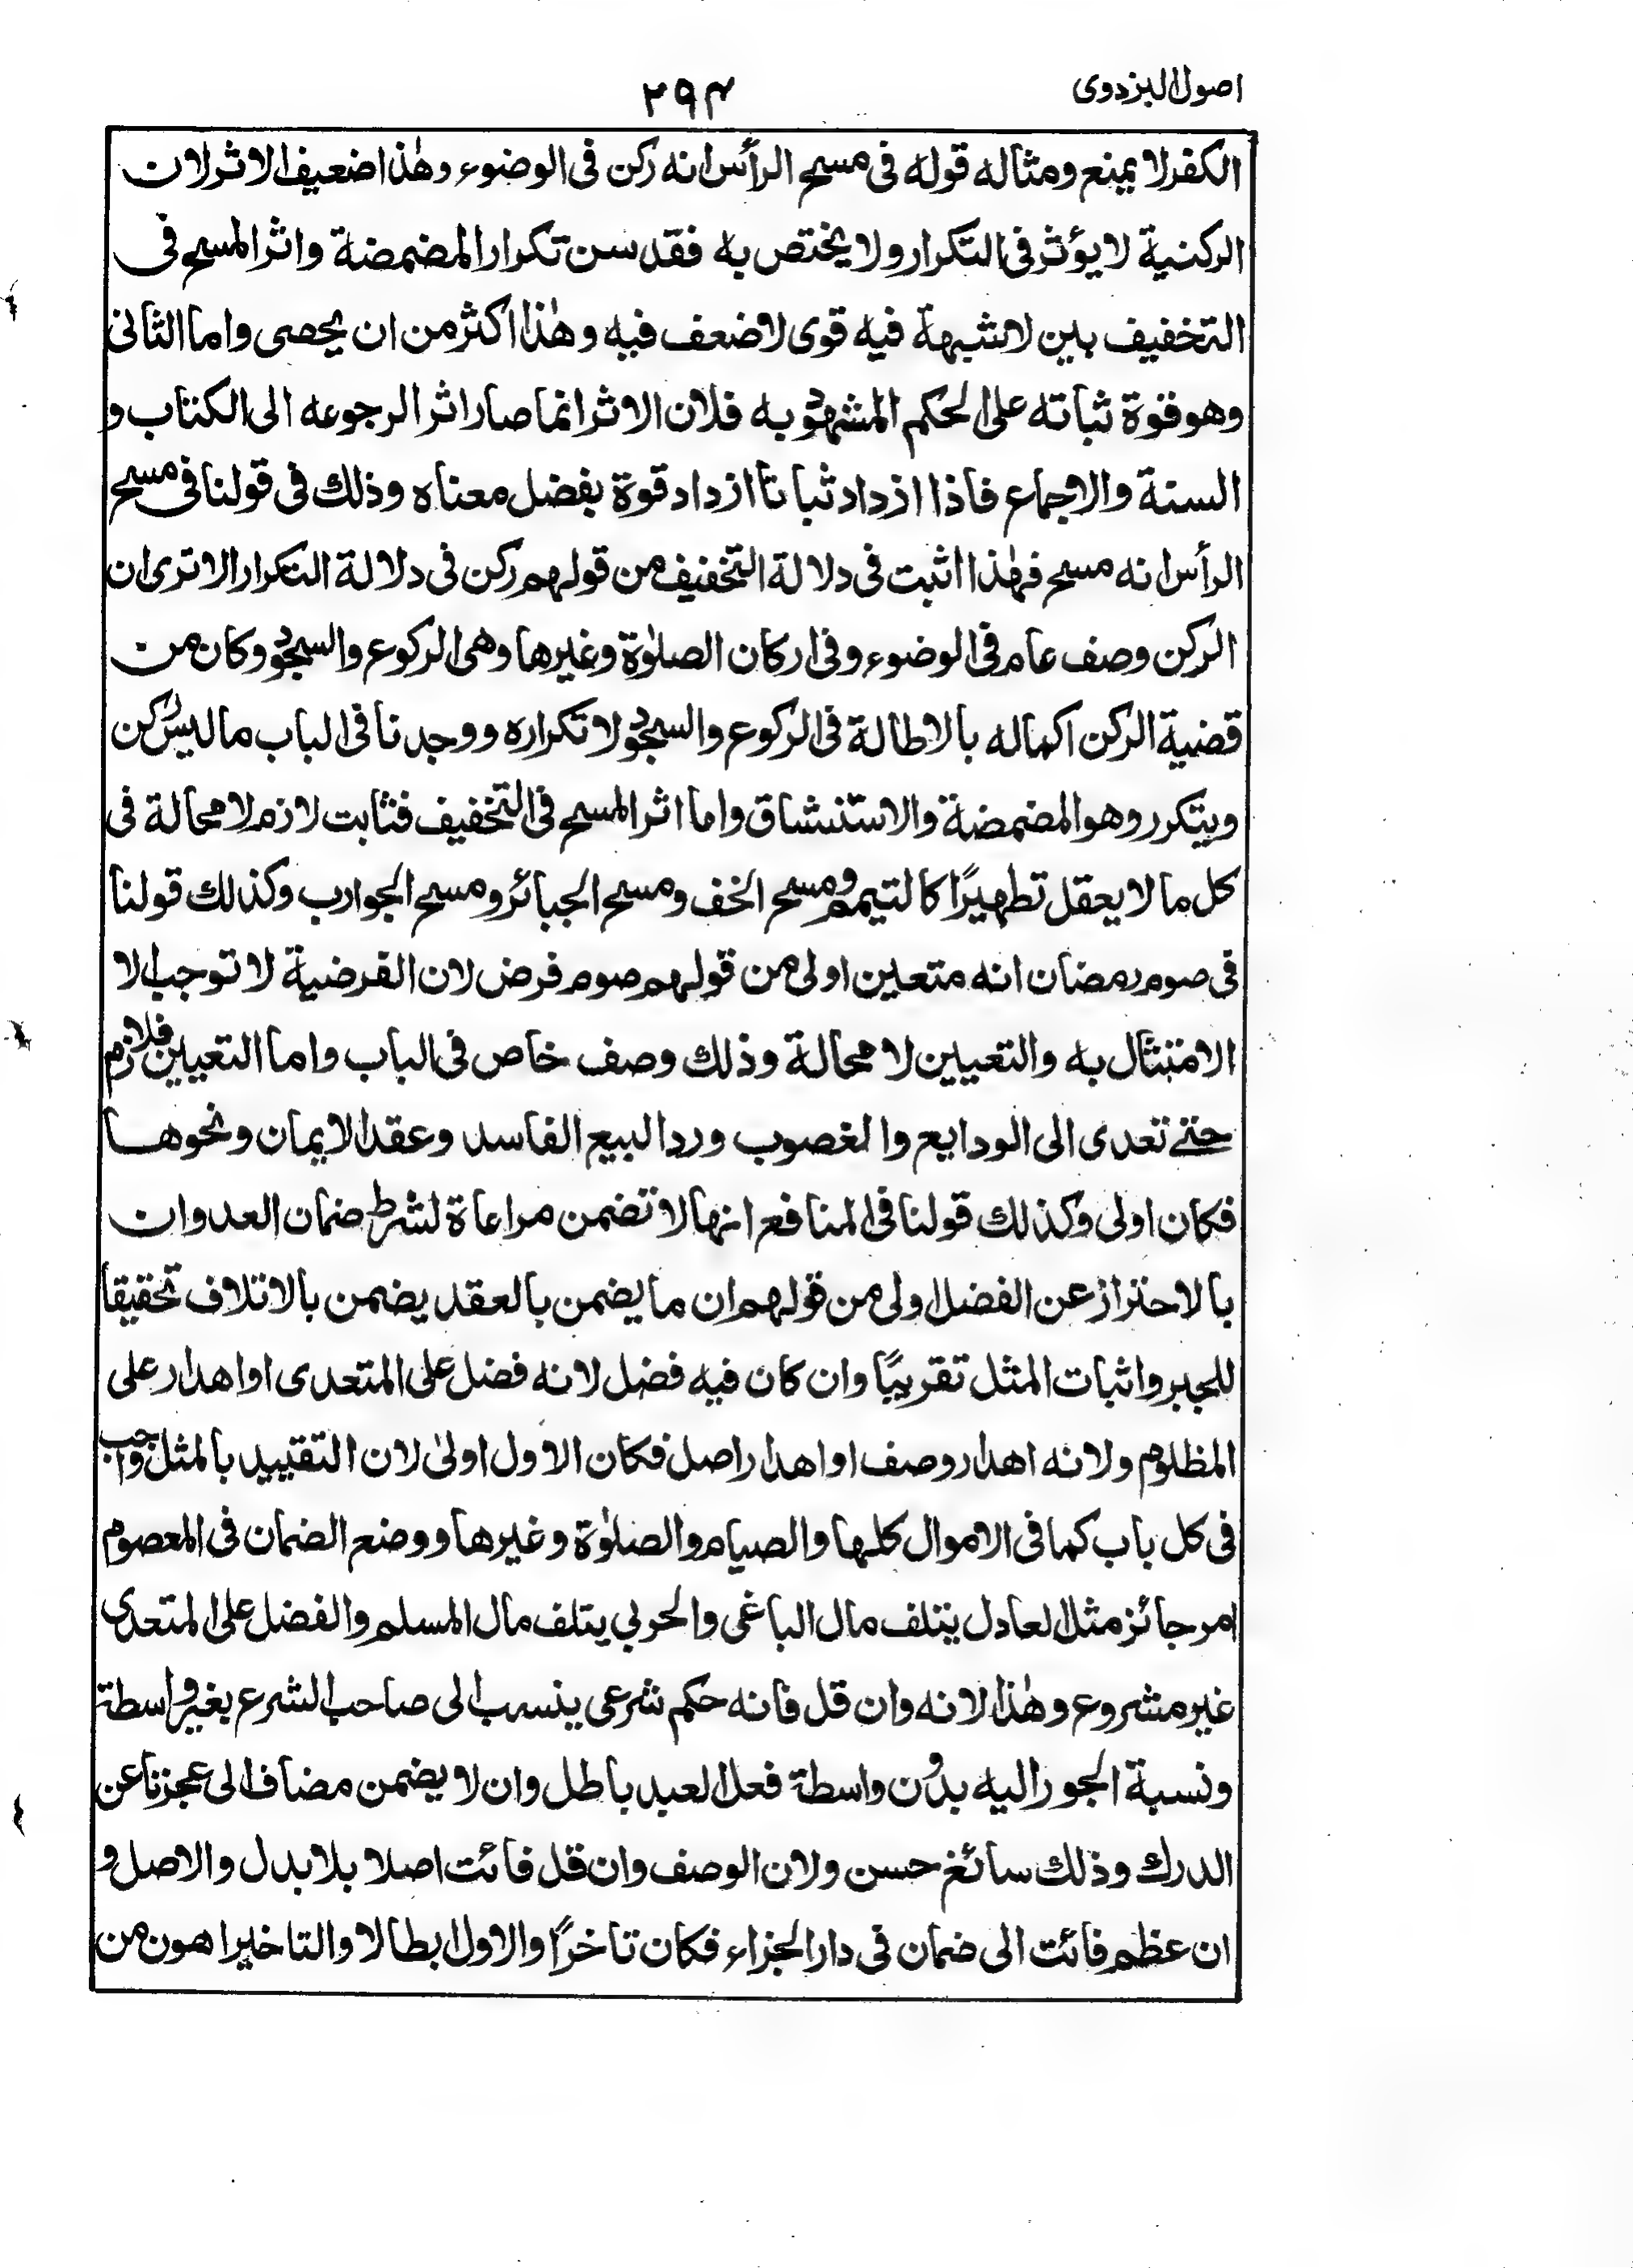 اصول البزدوی
۲۹۴
الكفر لا يمنع ومثاله قوله فى مسح الرأس انه ركن فى الوضوء وهٰذا ضعيف الاثر لان
الركنية لا يؤثر فى التكرار ولا يختص به فقد سن تكرار المضمضة واثر المسح فى
التخفيف بين لا شبهة فيه قوى لا ضعف فيه وهٰذا اكثر من ان يحصى واما الثانى
وهو قوة ثباته على الحكم المشهود به فلان الاثر انما صار اثرا لرجوعه الى الكتاب و
السنة والاجماع فاذا ازداد ثباتا ازداد قوة بفضل معناه وذلك فى قولنا فى مسح
الرأس انه مسح فهٰذا اثبت فى دلالة التخفيف من قولهم ركن فى دلالة التكرار الا ترى ان
الركن وصف عام فى الوضوء وفى اركان الصلوٰة وغيرها وهى الركوع والسجود وكان من
قضية الركن اكماله بالاطالة فى الركوع والسجود لا تكراره ووجدنا فى الباب ما ليس بركن
ويتكرر وهو المضمضة والاستنشاق واما اثر المسح فى التخفيف فثابت لازم لا محالة فى
كل ما لا يعقل تطهيرًا كالتيمم ومسح الخف ومسح الجبائر ومسح الجوارب وكذلك قولنا
فى صوم رمضان انه متعين اولى من قولهم صوم فرض لان الفرضية لا توجب الا
الامتثال به والتعيين لا محالة وذلك وصف خاص فى الباب واما التعيين فلازم
حتى تعدى الى الودايع والغصوب ورد البيع الفاسد وعقد الايمان ونحوها
فكان اولى وكذلك قولنا فى المنافع انها لا تضمن مراعاة لشرط ضمان العدوان
بالاحتراز عن الفضل اولى من قولهم ان ما يضمن بالعقد يضمن بالاتلاف تحقيقا
للجبر واثبات المثل تقريبًا وان كان فيه فضل لانه فضل على المتعدى او اهدار على
المظلوم ولانه اهدار وصف او اهدار اصل فكان الاول اولىٰ لان التقييد بالمثل واجب
فى كل باب كما فى الاموال كلها والصيام والصلوٰة وغيرها ووضع الضمان فى المعصوم
امر جائز مثل العادل يتلف مال الباغى والحربى يتلف مال المسلم والفضل على المتعدى
غير مشروع وهٰذا لانه وان قل فانه حكم شرعى ينسب الى صاحب الشرع بغير واسطة
ونسبة الجور اليه بدون واسطة فعل العبد باطل وان لا يضمن مضاف الى عجزنا عن
الدرك وذلك سائغ حسن ولان الوصف وان قل فائت اصلا بلا بدل والاصل و
ان عظم فائت الى ضمان فى دار الجزاء فكان تاخرًا والاول ابطالا والتاخير اهون من